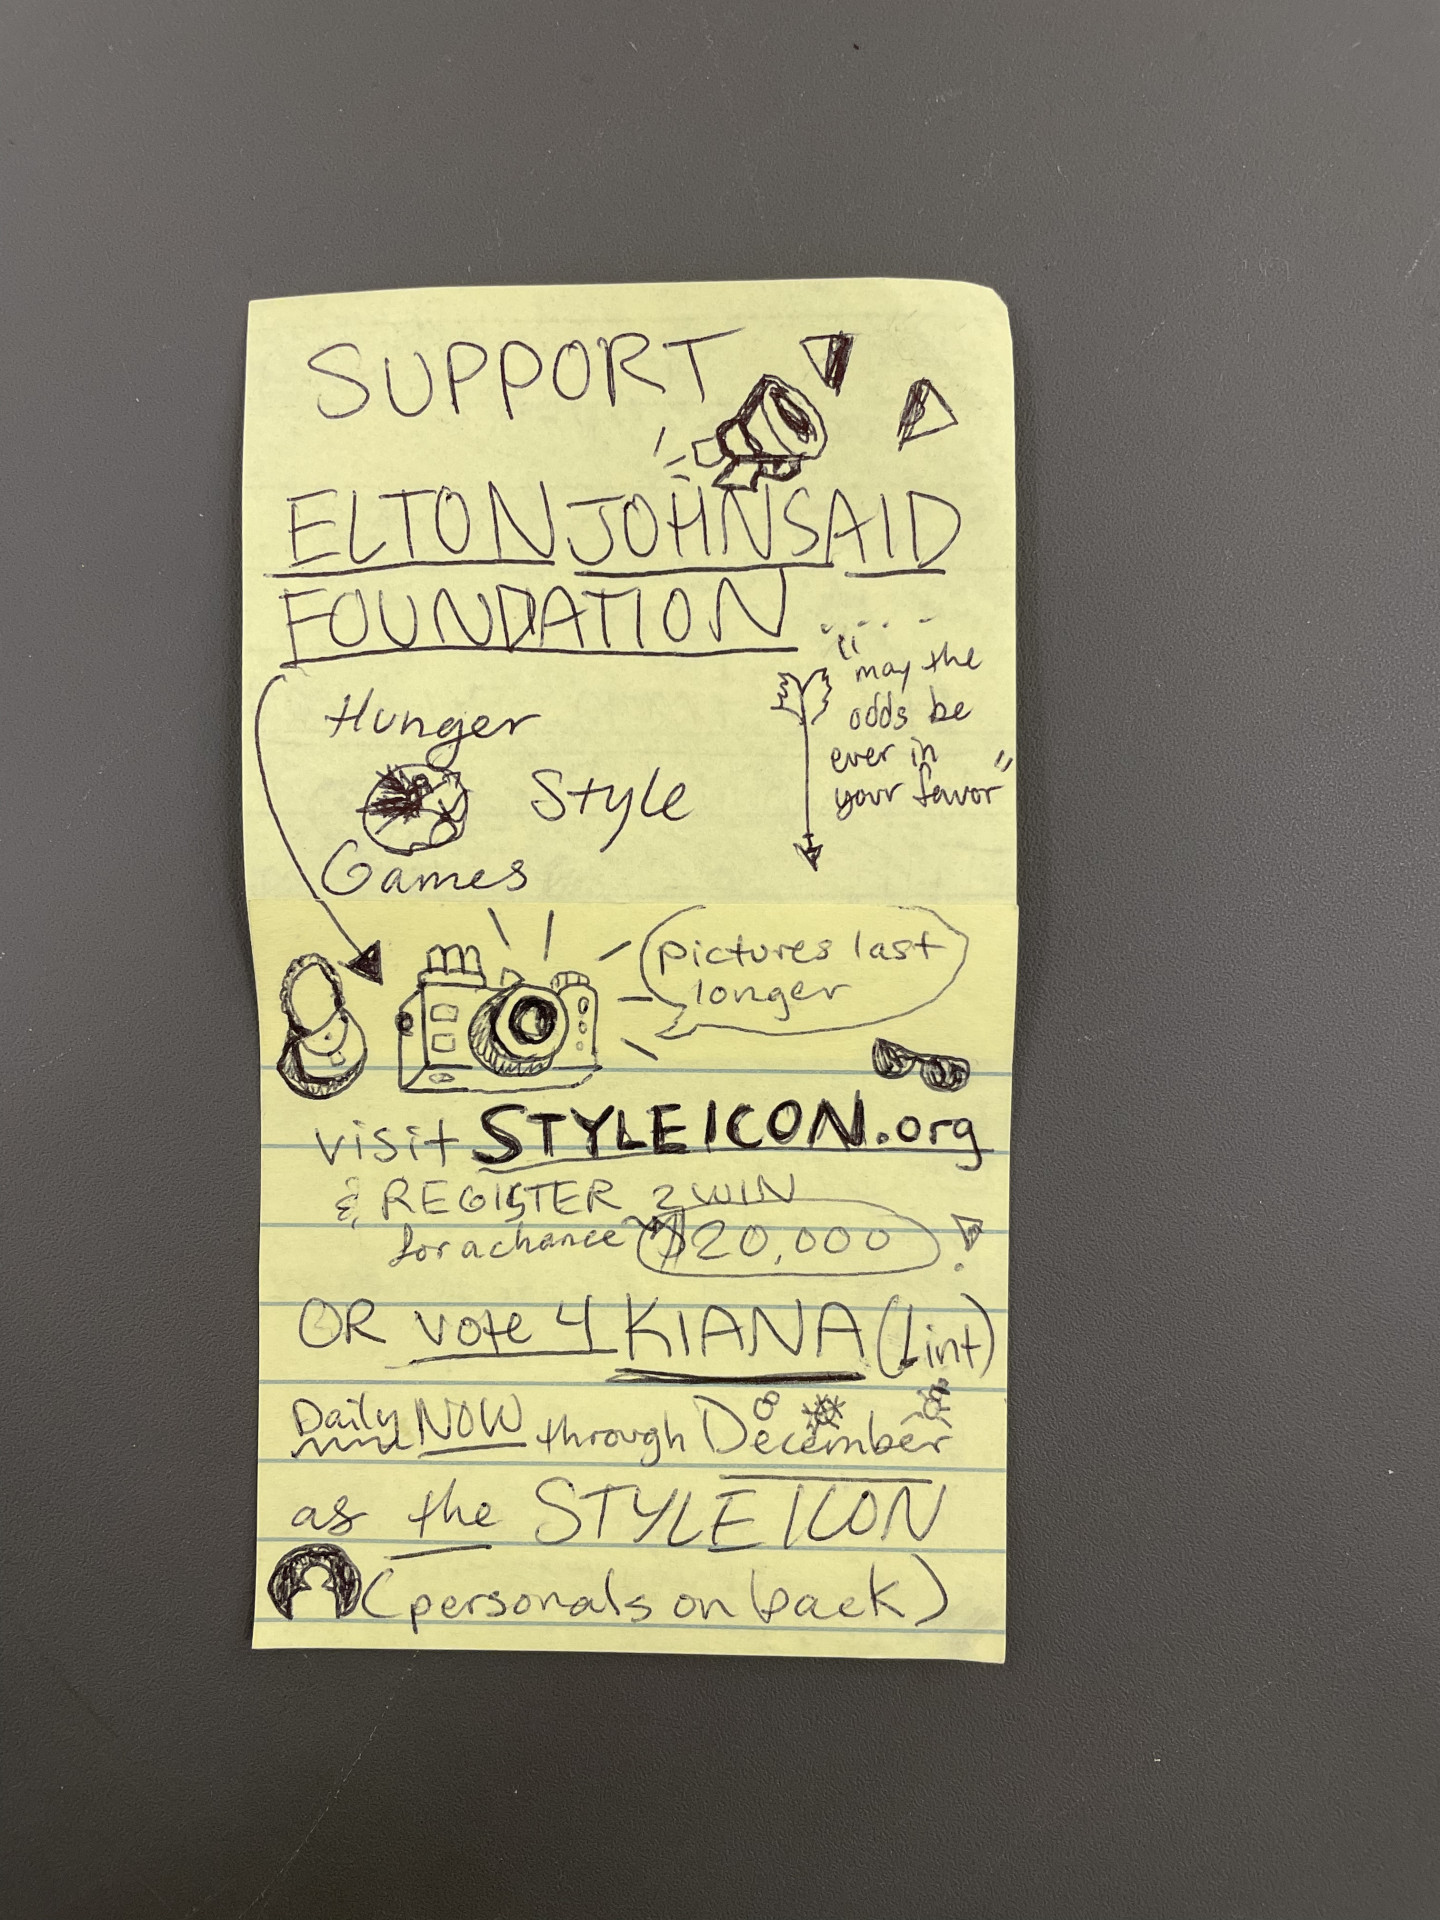 SUPPORT
ELTON JOHNS AID
FOUNDATION
"may the
odds be
ever in
your favor"
Hunger
Style
Games
pictures last
longer
visit STYLEICON.org
& REGISTER 2 WIN
for a chance $20,000
OR vote 4 KIANA (Lint)
Daily NOW through December
as the STYLE ICON
(personals on back)